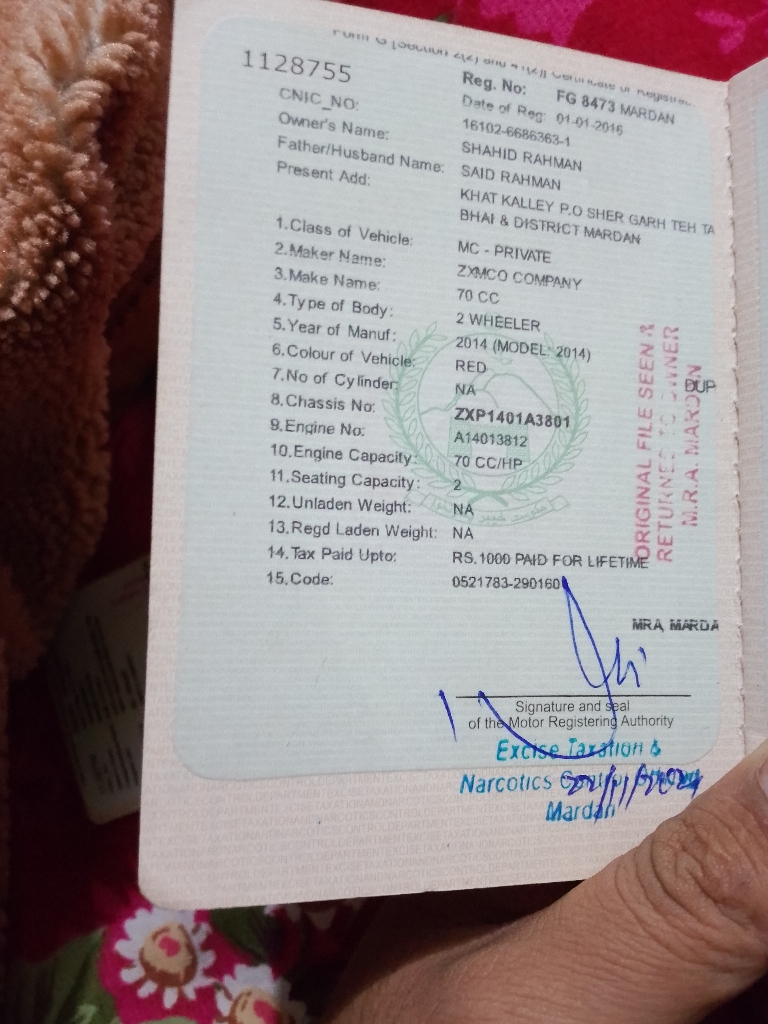 Form G [Section 2(2) and 41(2)] Certificate of Registration
1128755
Reg. No: FG 8473 MARDAN
Date of Reg: 01-01-2016
CNIC_NO: 16102-6686363-1
Owner's Name: SHAHID RAHMAN
Father/Husband Name: SAID RAHMAN
Present Add: KHAT KALLEY P.O SHER GARH TEH TA
BHAI & DISTRICT MARDAN
1.Class of Vehicle: MC - PRIVATE
2.Maker Name: ZXMCO COMPANY
3.Make Name: 70 CC
4.Type of Body: 2 WHEELER
5.Year of Manuf: 2014 (MODEL: 2014)
6.Colour of Vehicle: RED
7.No of Cylinder: NA
8.Chassis No: ZXP1401A3801
9.Engine No: A14013812
10.Engine Capacity: 70 CC/HP
11.Seating Capacity: 2
12.Unladen Weight: NA
13.Regd Laden Weight: NA
14.Tax Paid Upto: RS.1000 PAID FOR LIFETIME
15.Code: 0521783-290160
DUP
ORIGINAL FILE SEEN &
RETURNED TO OWNER
M.R.A. MARDAN
MRA, MARDA
Signature and seal
of the Motor Registering Authority
Excise Taxation &
Narcotics
Mardan